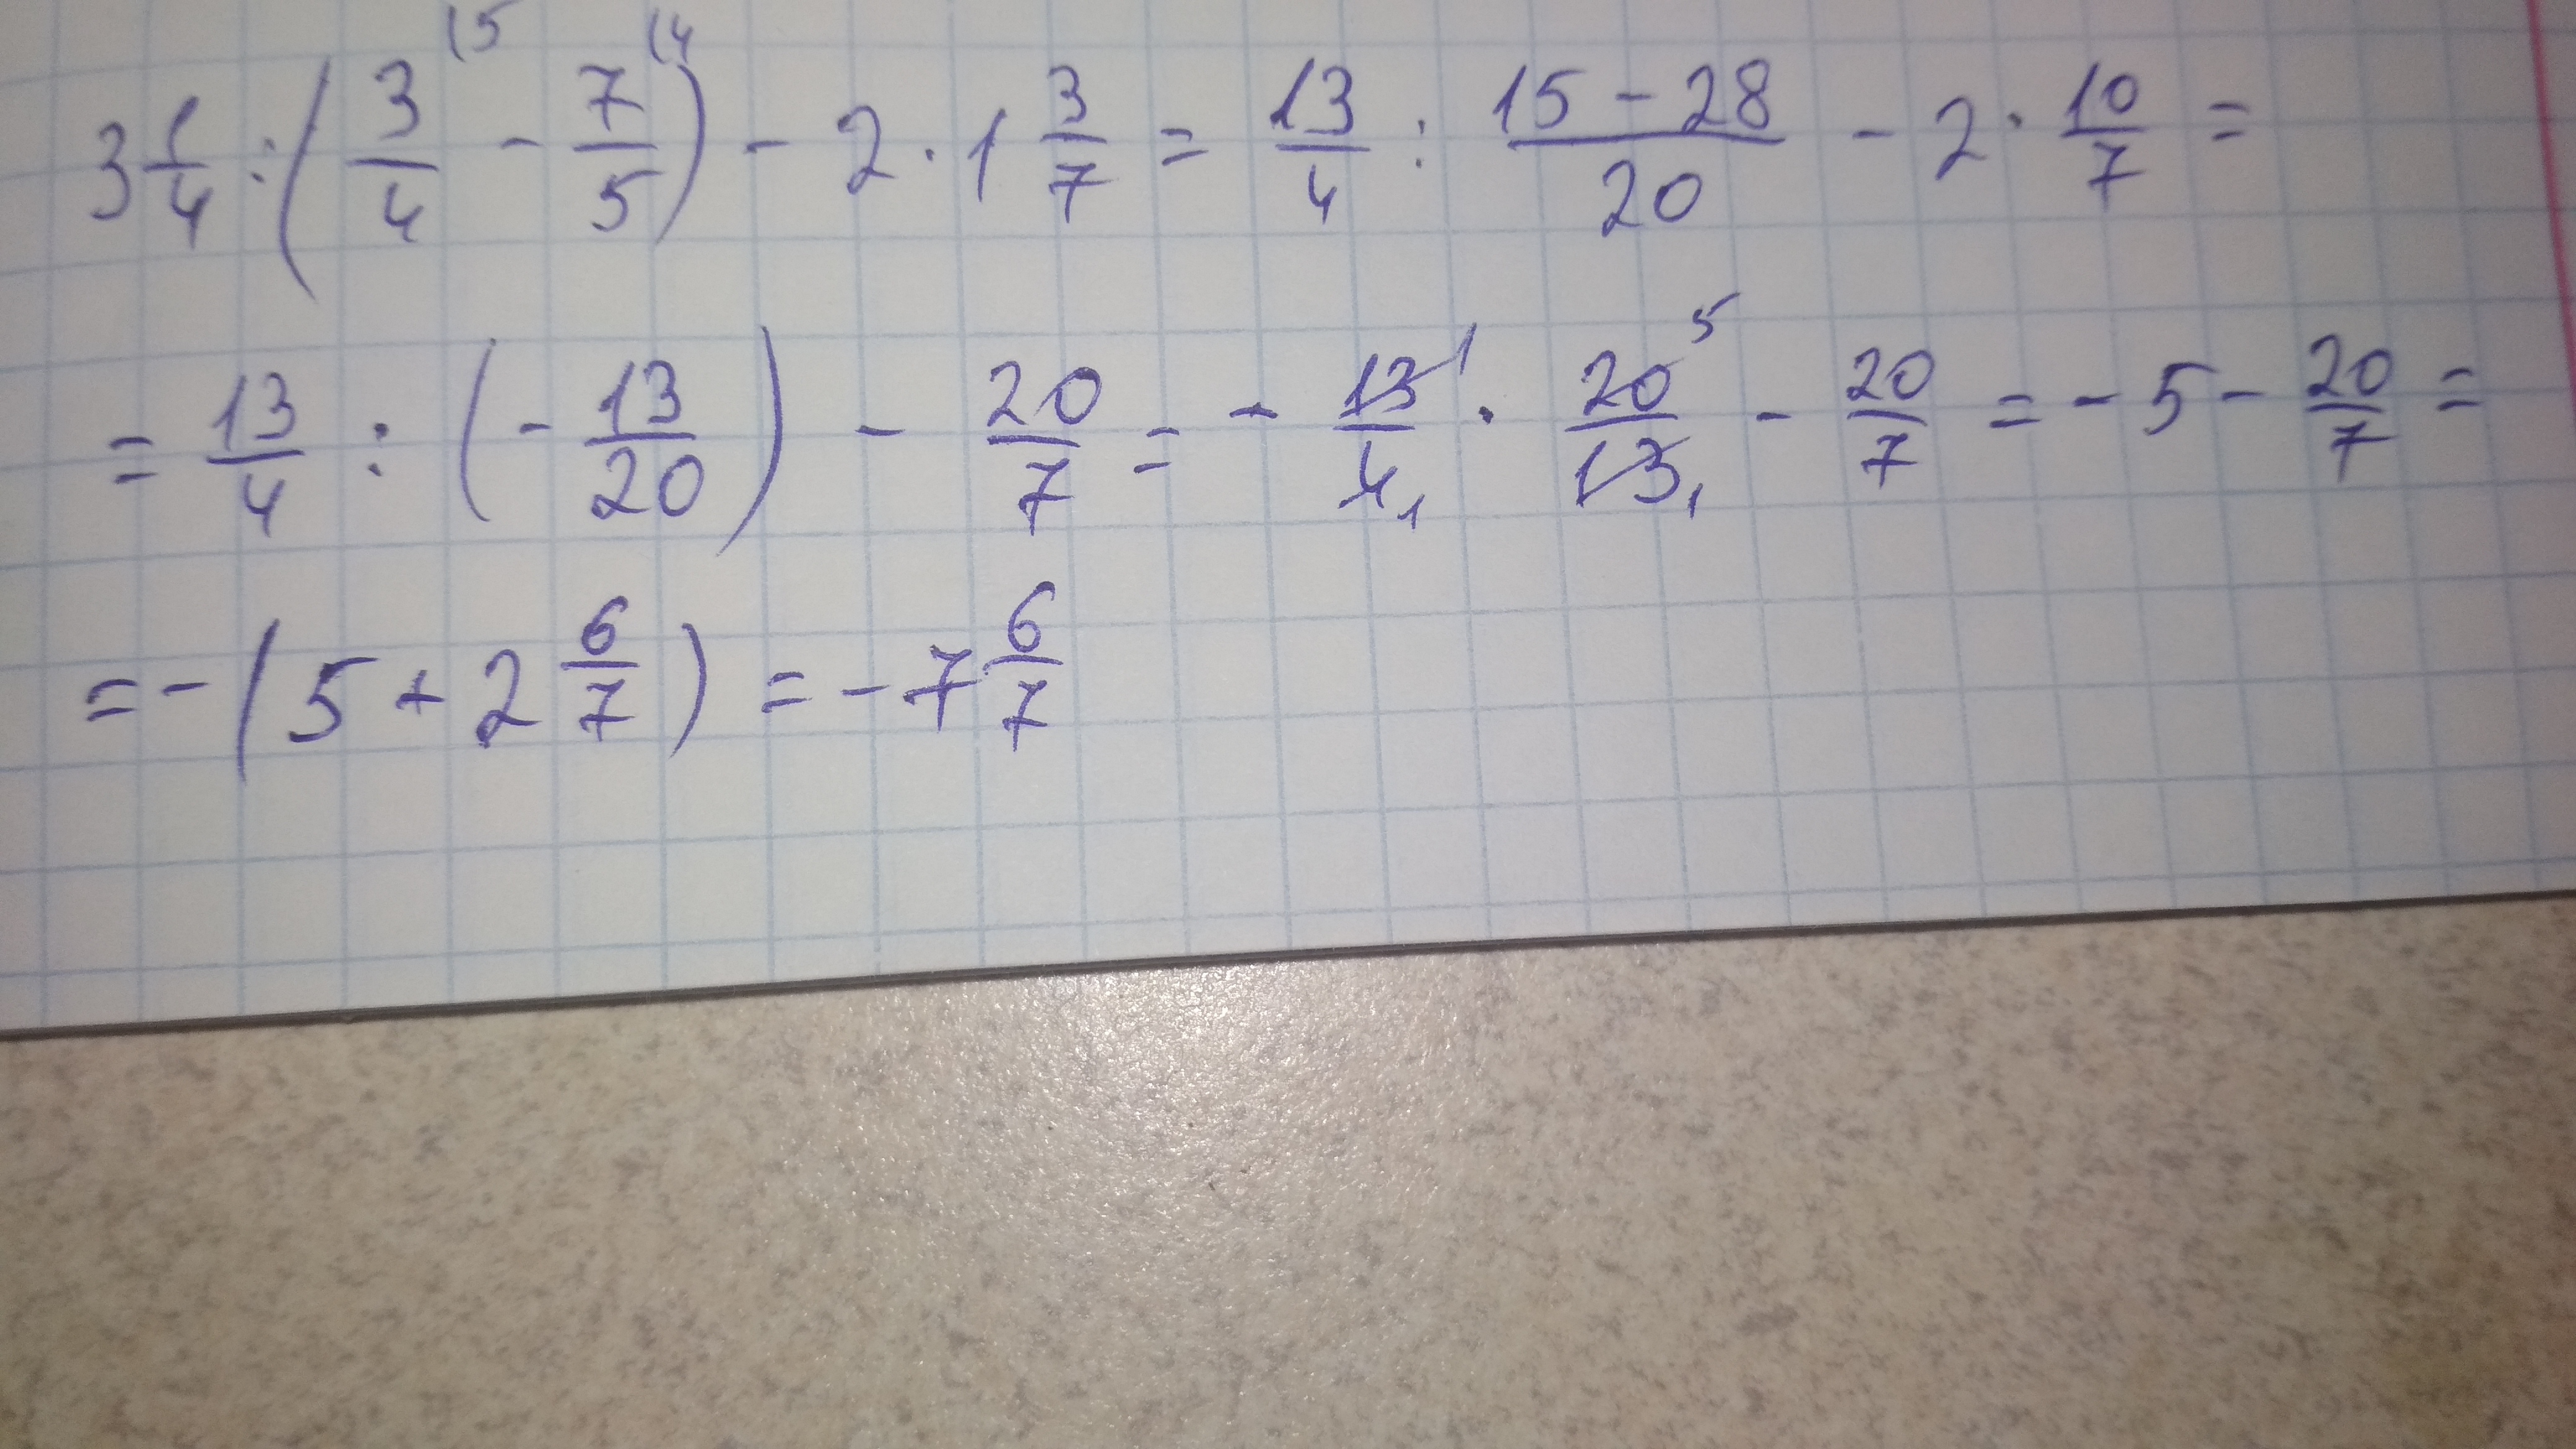 3 1/4 : (3/4 (5 - 7/5 (4) - 2 · 1 3/7 = 13/4 : (15 - 28)/20 - 2 · 10/7 =
= 13/4 : (- 13/20) - 20/7 = - 13 1/4 1 · 20 5/13 1 - 20/7 = - 5 - 20/7 =
= - (5 + 2 6/7) = - 7 6/7